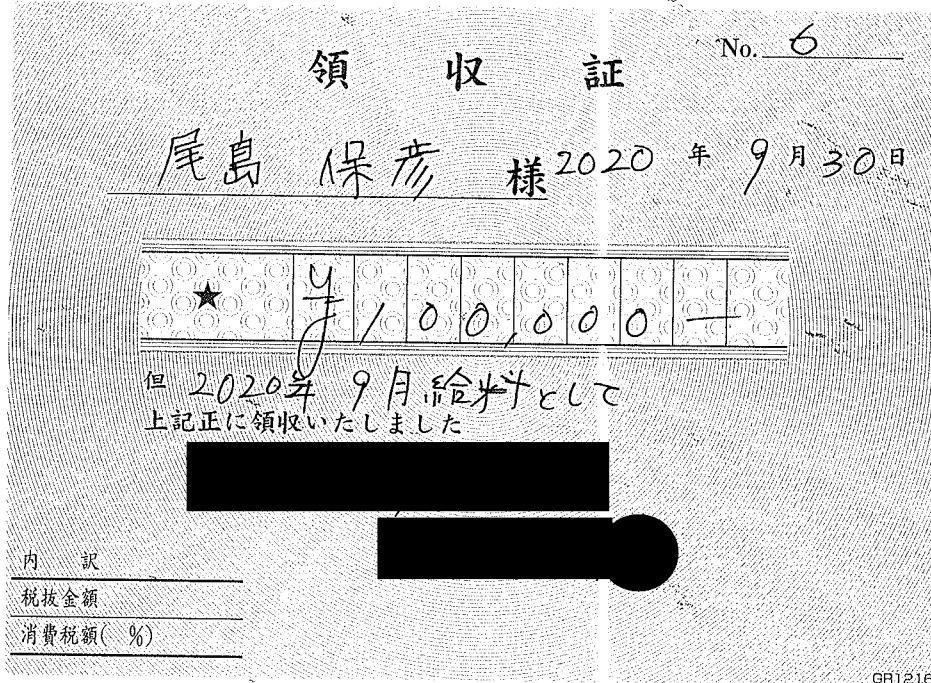 領収証
No. 6
尾島 保彦 様
2020年 9月30日
★ ¥100,000―
但 2020年 9月給料として
上記正に領収いたしました
内 訳
税抜金額
消費税額( %)
GR1216